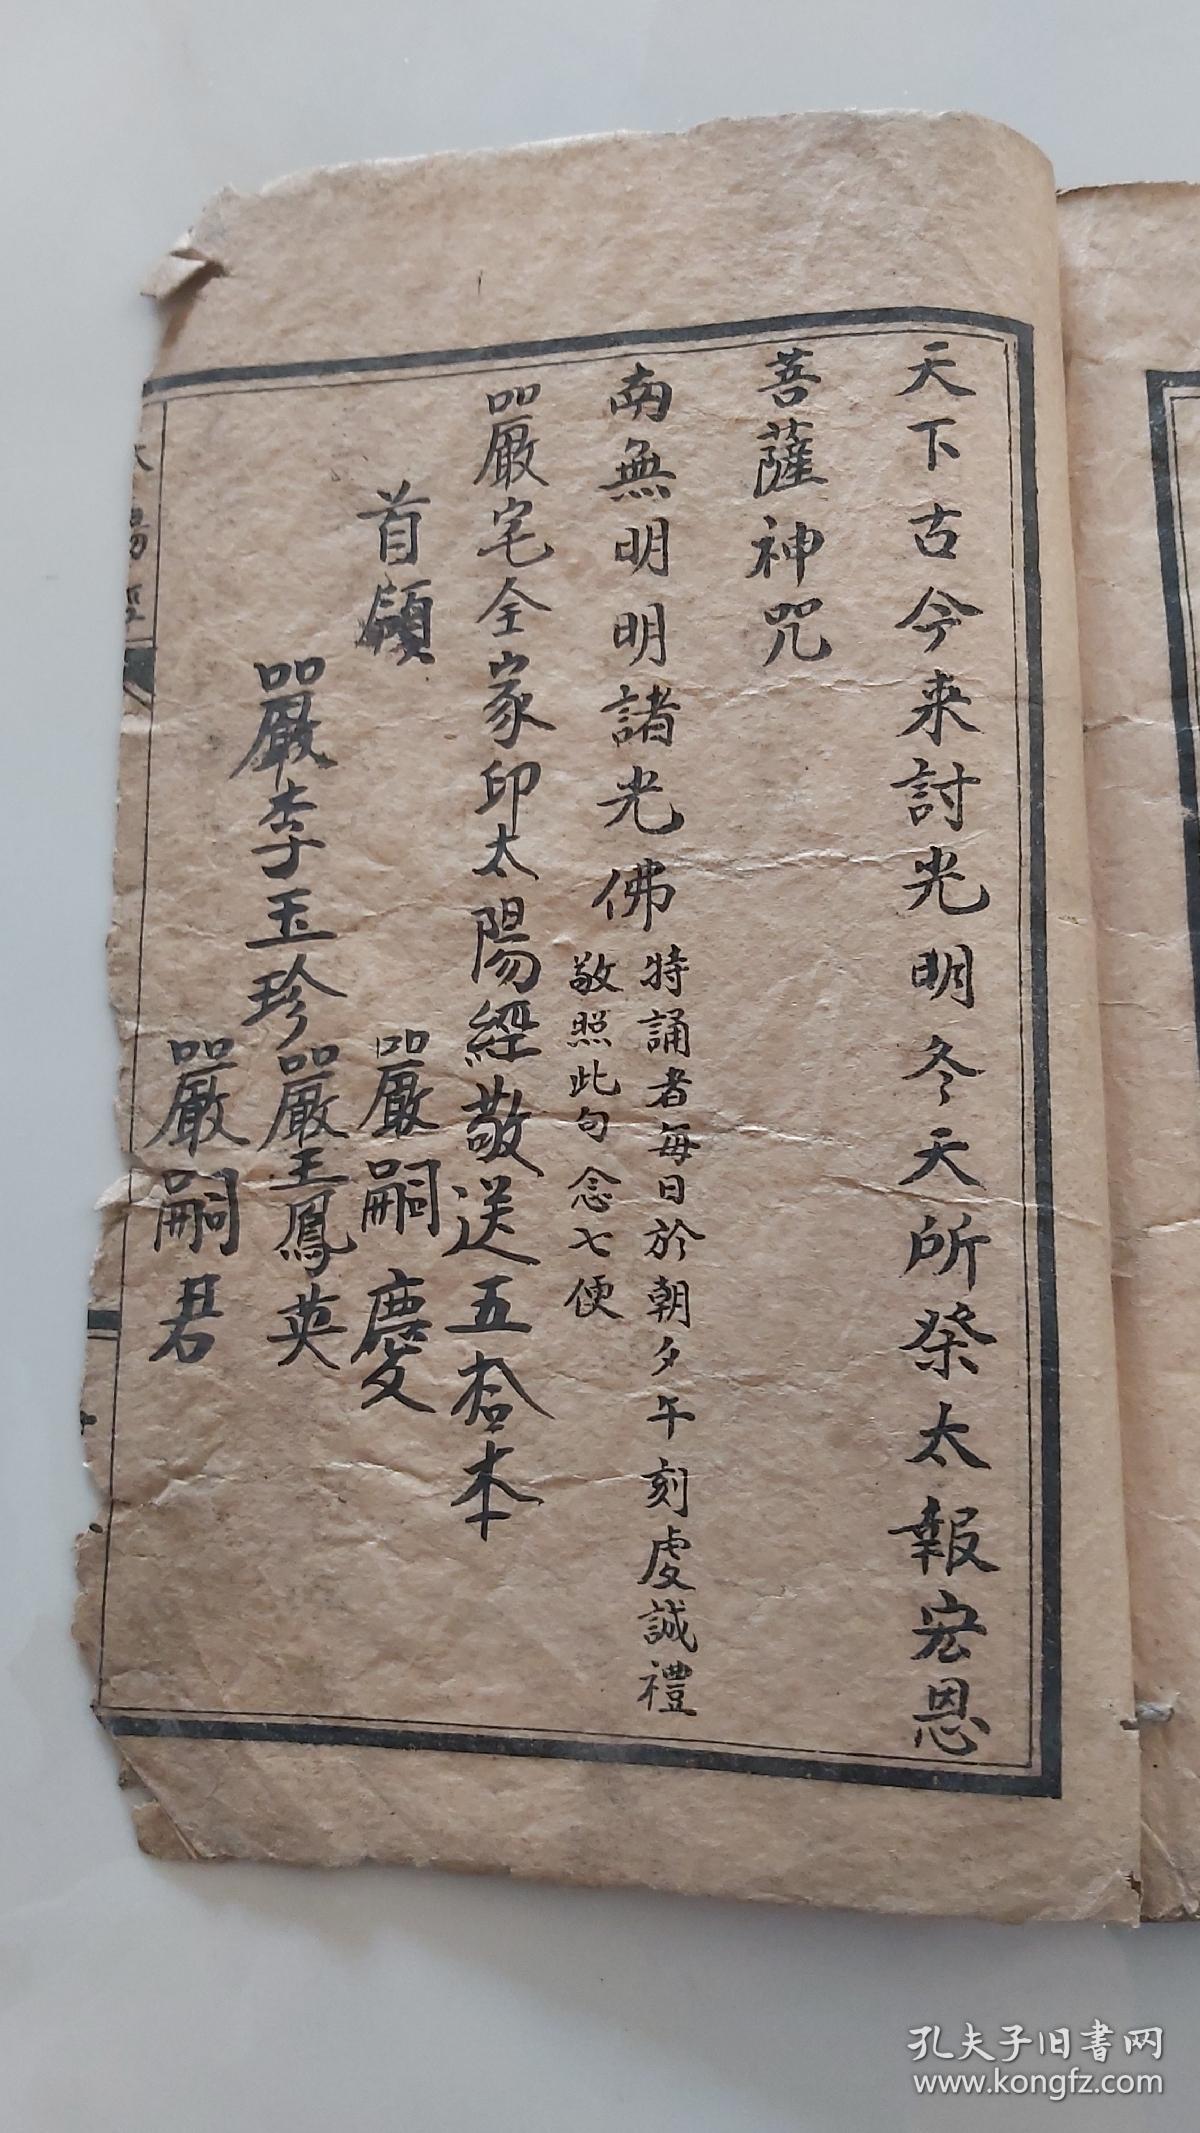 天下古今来討光明冬天所祭太報宏恩
菩薩神咒
南無明明諸光佛
特誦者每日於朝夕午刻虔誠禮
敬照此句念七便
嚴宅全家印太陽經敬送五拾本
首領
嚴嗣慶
嚴李玉珍
嚴王鳳英
嚴嗣君
陽經
孔夫子旧书网
www.kongfz.com